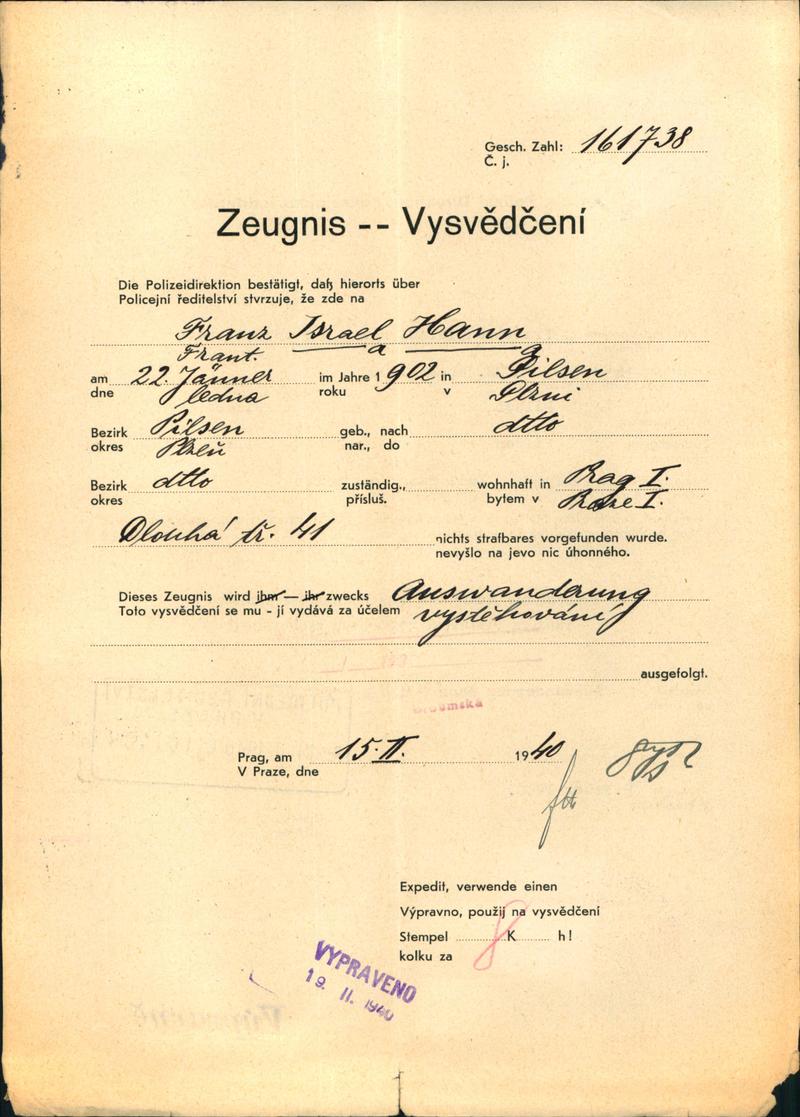 Gesch. Zahl: 161738
Č. j.
Zeugnis -- Vysvědčení
Die Polizeidirektion bestätigt, daß hierorts über
Policejní ředitelství stvrzuje, že zde na
Franz Israel Hann
Frant. a a
am 22. Jänner im Jahre 1902 in Pilsen
dne ledna roku v Plzni
Bezirk Pilsen geb., nach dtto
okres Plzeň nar., do
Bezirk dtto zuständig., wohnhaft in Prag I.
okres přísluš. bytem v Praze I.
Dlouhá tř. 41 nichts strafbares vorgefunden wurde.
nevyšlo na jevo nic úhonného.
Dieses Zeugnis wird ihm — ihr zwecks Auswanderung
Toto vysvědčení se mu - jí vydává za účelem vystěhování
ausgefolgt.
Prag, am 15. II. 1940
V Praze, dne
Expedit, verwende einen
Výpravno, použij na vysvědčení
Stempel 8 K h!
kolku za
VYPRAVENO
19. II. 1940